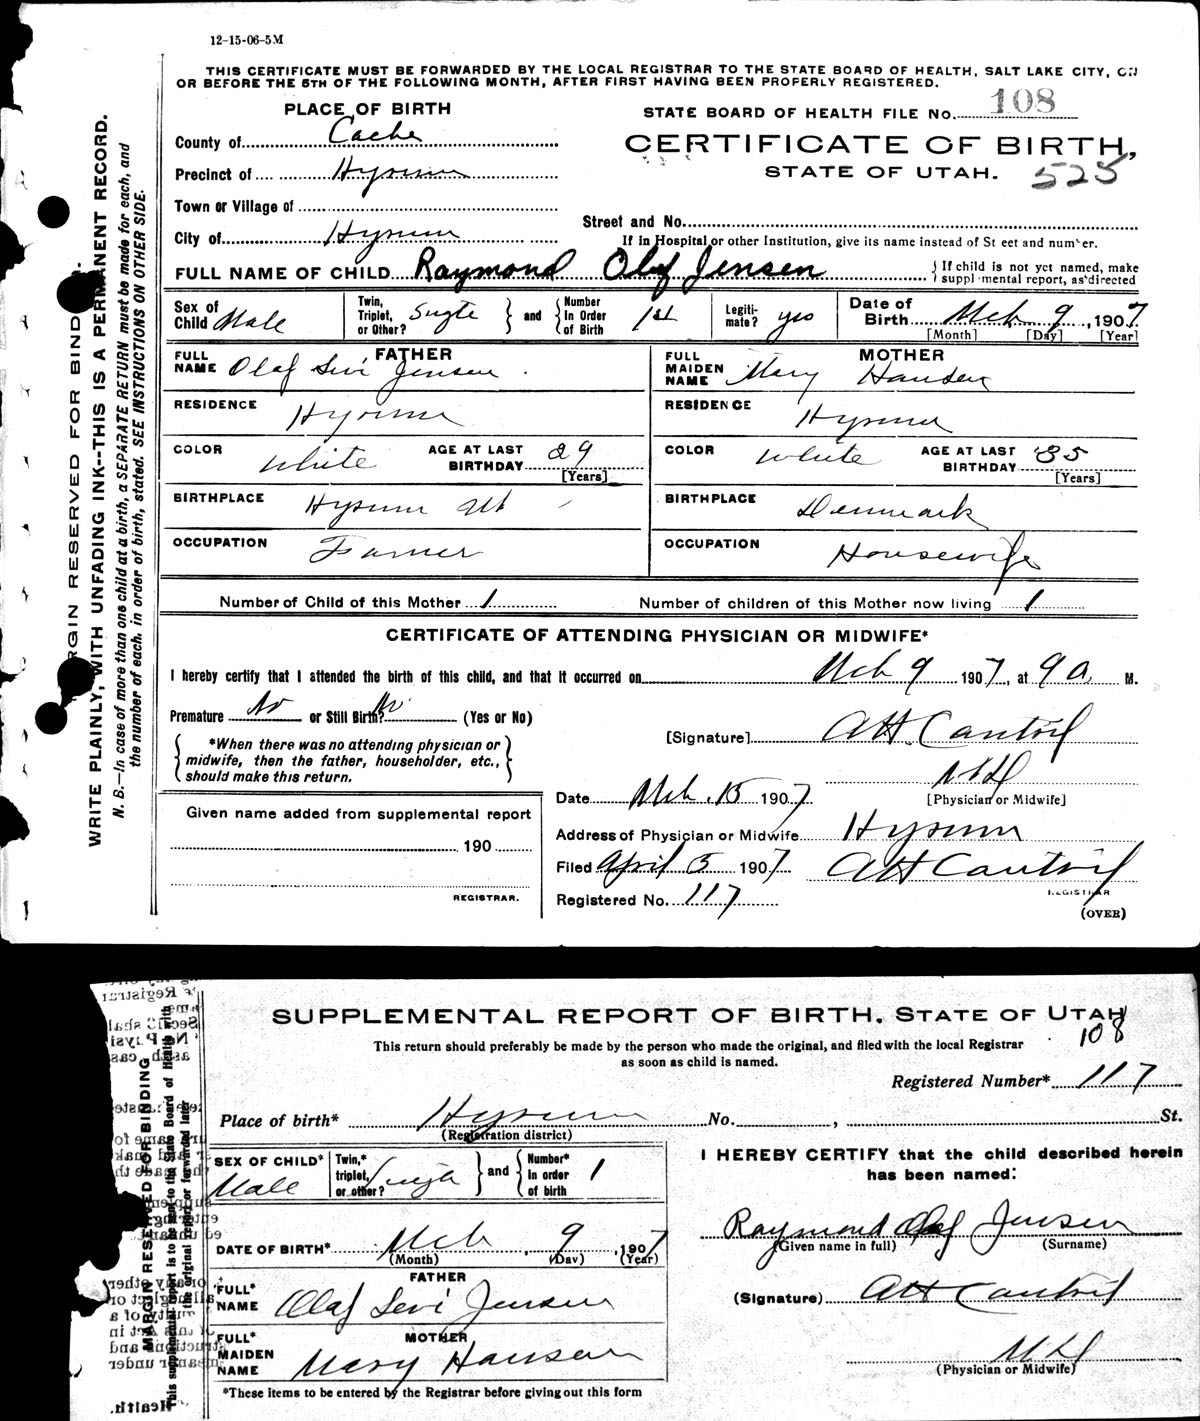 12-15-06-5M
THIS CERTIFICATE MUST BE FORWARDED BY THE LOCAL REGISTRAR TO THE STATE BOARD OF HEALTH, SALT LAKE CITY, ON
OR BEFORE THE 5TH OF THE FOLLOWING MONTH, AFTER FIRST HAVING BEEN PROPERLY REGISTERED.
PLACE OF BIRTH
STATE BOARD OF HEALTH FILE No. 108
County of Cache
CERTIFICATE OF BIRTH,
STATE OF UTAH. 525
Precinct of Hyrum
Town or Village of
Street and No.
City of Hyrum
If in Hospital or other Institution, give its name instead of St eet and number.
FULL NAME OF CHILD Raymond Olaf Jensen
If child is not yet named, make
suppl mental report, as directed
Sex of Child Male
Twin, Triplet, or Other? Single and Number In Order of Birth 1st
Legiti- mate? yes
Date of Birth Mch 9, 1907
[Month] [Day] [Year]
FATHER
FULL NAME Olaf Levi Jensen
RESIDENCE Hyrum
COLOR White AGE AT LAST BIRTHDAY 29 [Years]
BIRTHPLACE Hyrum Ut
OCCUPATION Farmer
MOTHER
FULL MAIDEN NAME Mary Hansen
RESIDENCE Hyrum
COLOR White AGE AT LAST BIRTHDAY 35 [Years]
BIRTHPLACE Denmark
OCCUPATION Housewife
Number of Child of this Mother 1 Number of children of this Mother now living 1
CERTIFICATE OF ATTENDING PHYSICIAN OR MIDWIFE*
I hereby certify that I attended the birth of this child, and that it occurred on Mch 9 1907, at 9 a. M.
Premature No or Still Birth? No (Yes or No)
*When there was no attending physician or
midwife, then the father, householder, etc.,
should make this return.
[Signature] AH Cantril
MD
[Physician or Midwife]
Date Mch. 15 1907
Given name added from supplemental report
190
REGISTRAR.
Address of Physician or Midwife Hyrum
Filed April 5 1907 AH Cantril
REGISTRAR
Registered No. 117
(OVER)
MARGIN RESERVED FOR BINDING.
WRITE PLAINLY, WITH UNFADING INK--THIS IS A PERMANENT RECORD.
N. B.—In case of more than one child at a birth, a SEPARATE RETURN must be made for each, and
the number of each, in order of birth, stated. SEE INSTRUCTIONS ON OTHER SIDE.
SUPPLEMENTAL REPORT OF BIRTH. STATE OF UTAH
108
This return should preferably be made by the person who made the original, and filed with the local Registrar
as soon as child is named.
Registered Number* 117
Place of birth* Hyrum No. , St.
(Registration district)
SEX OF CHILD* Male
Twin,* triplet, or other? Single and Number* In order of birth 1
I HEREBY CERTIFY that the child described herein
has been named:
Raymond Olaf Jensen
(Given name in full) (Surname)
DATE OF BIRTH* Mch 9, 1907
(Month) (Day) (Year)
FATHER
FULL* NAME Olaf Levi Jensen
(Signature) AH Cantril
MOTHER
FULL* MAIDEN NAME Mary Hansen
MD
(Physician or Midwife)
*These items to be entered by the Registrar before giving out this form
MARGIN RESERVED FOR BINDING
This supplemental report is to be sent to the State Board of Health with
the original report or forwarded later